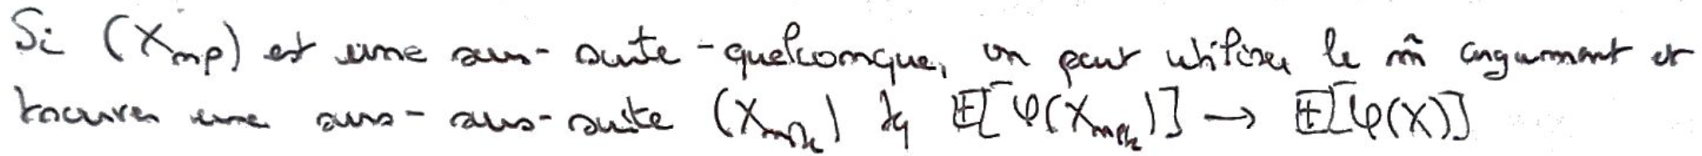 Si (X_{n_p}) est une sous-suite quelconque, on peut utiliser le m̃ argument et
trouver une sous-sous-suite (X_{n_{p_k}}) tq 𝔼[φ(X_{n_{p_k}})] → 𝔼[φ(X)]